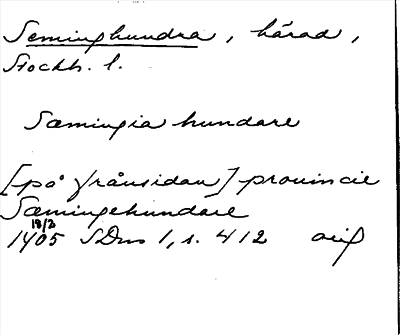 Seminghundra, härad,
Stockh. l.
Sæmingia hundare
[på frånsidan] prouincie
Sæmingehundare
18/3
1405 SDns 1, s. 412 orig